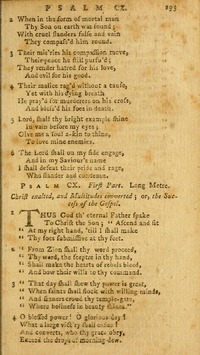 PSALM CX. 293
2 When in the form of mortal man
Thy Son on earth was found;
With cruel slanders false and vain
They compass'd him round.
3 Their mis'ries his compassion move,
Their peace he still pursu'd;
They render hatred for his love,
And evil for his good.
4 Their malice rag'd without a cause,
Yet with his dying breath
He pray'd for murderers on his cross,
And bless'd his foes in death.
5 Lord, shall thy bright example shine
In vain before my eyes;
Give me a soul a-kin to thine,
To love mine enemies.
6 The Lord shall on my side engage,
And in my Saviour's name
I shall defeat their pride and rage,
Who slander and condemn.
PSALM CX. First Part. Long Metre.
Christ exalted, and Multitudes converted; or, the Suc-
cess of the Gospel.
1 THUS God th' eternal Father spake
To Christ the Son; "Ascend and sit
" At my right hand, 'till I shall make
" Thy foes submissive at thy feet.
2 " From Zion shall thy word proceed,
" Thy word, the sceptre in thy hand,
" Shall make the hearts of rebels bleed,
" And bow their wills to thy command.
3 " That day shall shew thy power is great,
" When saints shall flock with willing minds,
" And sinners crowd thy temple-gate,
" Where holiness in beauty shines."
4 O blessed power! O glorious day!
What a large vict'ry shall ensue!
And converts, who thy grace obey,
Exceed the drops of morning-dew.